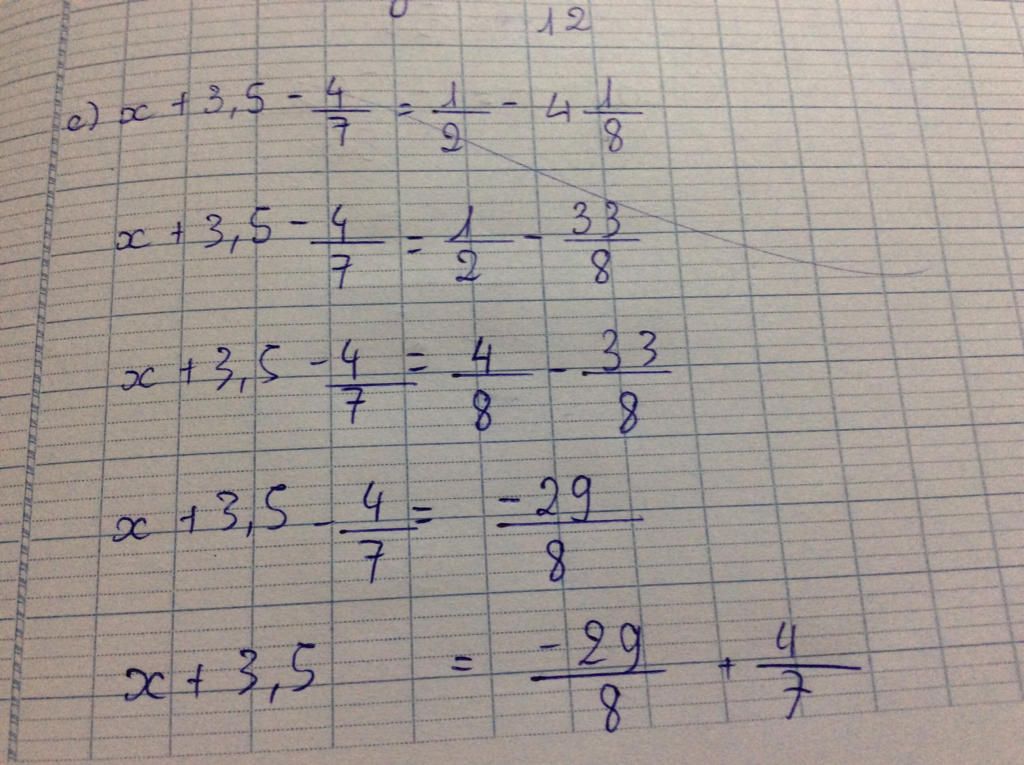 12
c) x + 3,5 - 4/7 = 1/2 - 4 1/8
x + 3,5 - 4/7 = 1/2 - 33/8
x + 3,5 - 4/7 = 4/8 - 33/8
x + 3,5 - 4/7 = -29/8
x + 3,5 = -29/8 + 4/7